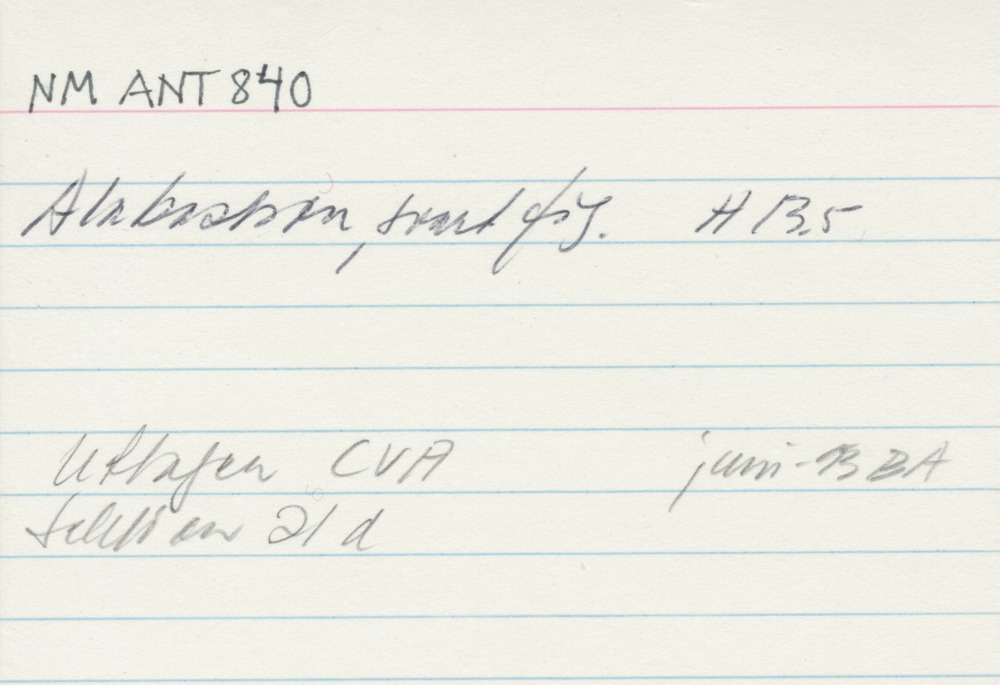 NM ANT 840
Alabastron, svart fig. H 13.5
Uttagen CVA juni -93 BA
Sektion 21 d